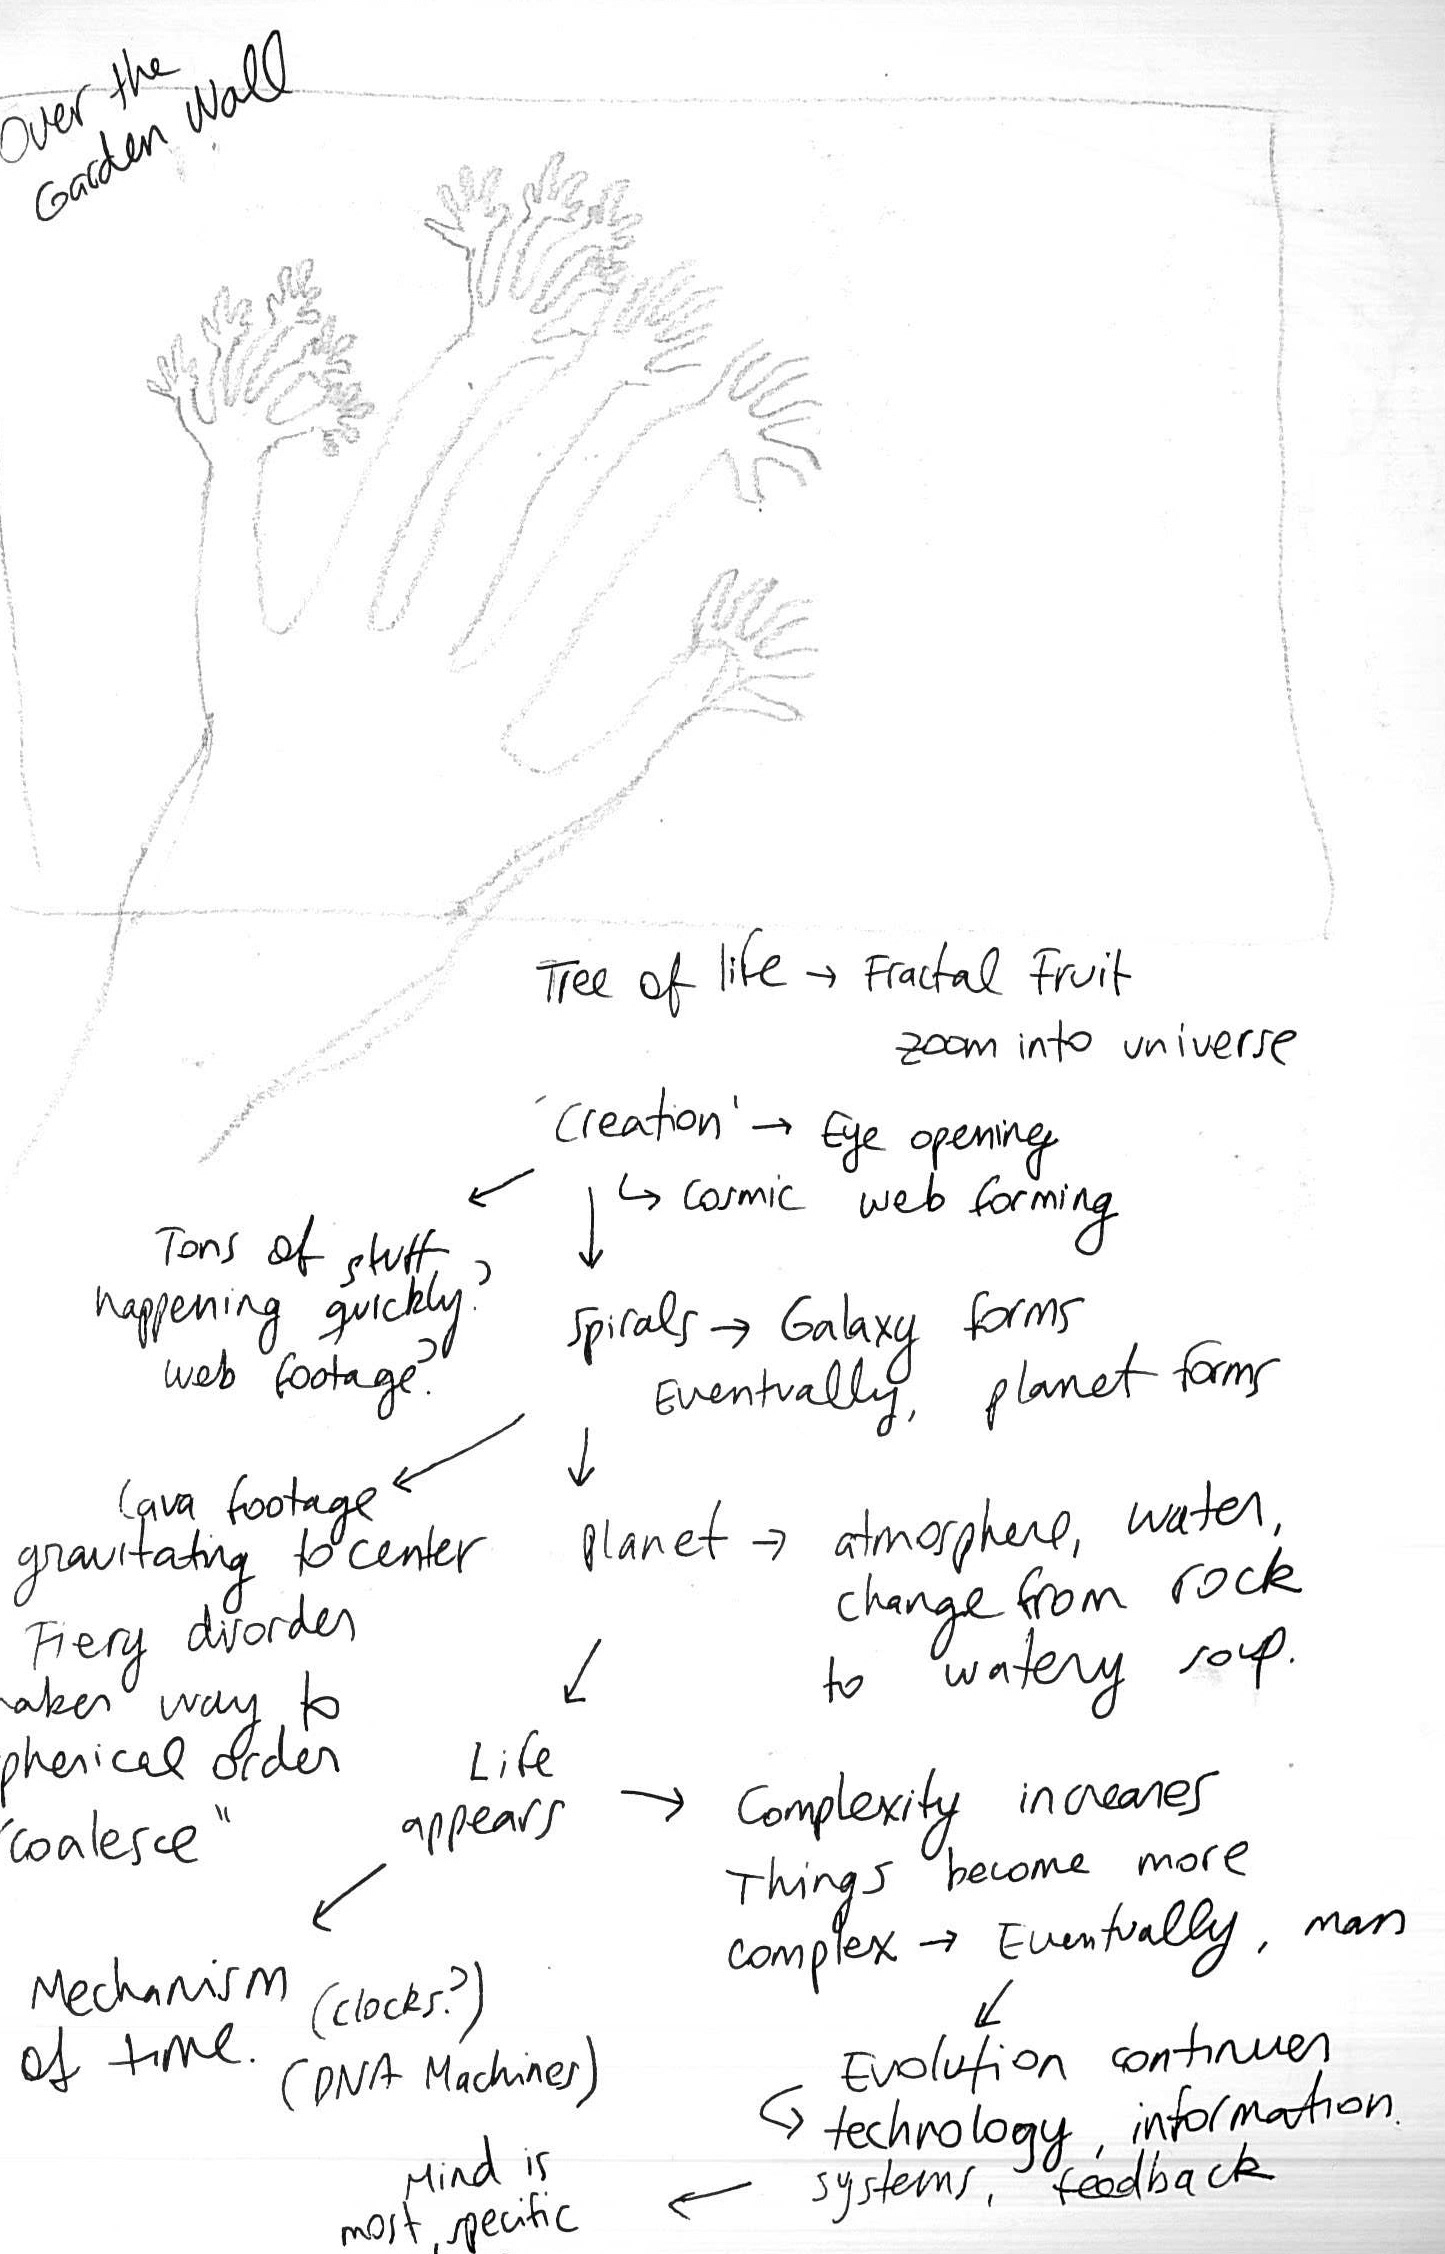 Over the
Garden Wall
Tree of life → Fractal Fruit
zoom into universe
'Creation' → Eye opening
↳ cosmic web forming
Tons of stuff
happening quickly?
web footage?
Spirals → Galaxy forms
Eventually, planet forms
Lava footage
gravitating to center
Fiery disorder
makes way to
spherical order
"coalesce"
Planet → atmosphere, water,
change from rock
to watery soup.
Life
appears → Complexity increases
Things become more
complex → Eventually, man
Mechanism (clocks?)
of time. (DNA Machines)
Evolution continues
↳ technology, information
systems, feedback
Mind is
most specific